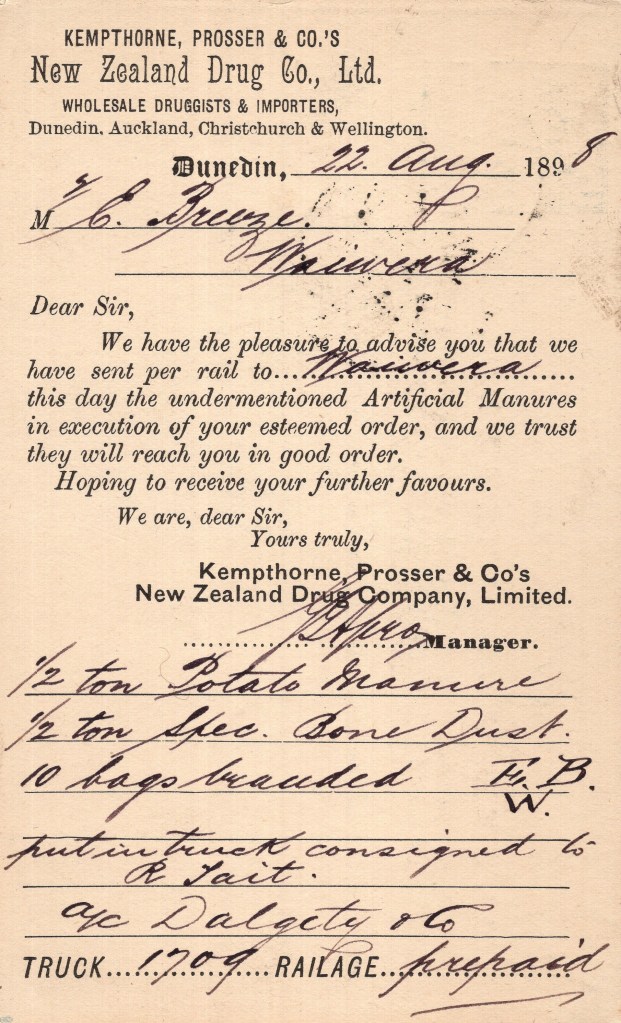 KEMPTHORNE, PROSSER & CO.'S
New Zealand Drug Co., Ltd.
WHOLESALE DRUGGISTS & IMPORTERS,
Dunedin, Auckland, Christchurch & Wellington.
Dunedin, 22. Aug. 1898
M r E. Breeze.
Waiwera
Dear Sir,
We have the pleasure to advise you that we
have sent per rail to... Waiwera ...
this day the undermentioned Artificial Manures
in execution of your esteemed order, and we trust
they will reach you in good order.
Hoping to receive your further favours.
We are, dear Sir,
Yours truly,
Kempthorne, Prosser & Co's
New Zealand Drug Company, Limited.
Manager.
1/2 ton Potato Manure
1/2 ton Spec. Bone Dust.
10 bags branded E. B.
W.
put in truck consigned to
R Tait.
a/c Dalgety & Co
TRUCK...1709...RAILAGE...prepaid